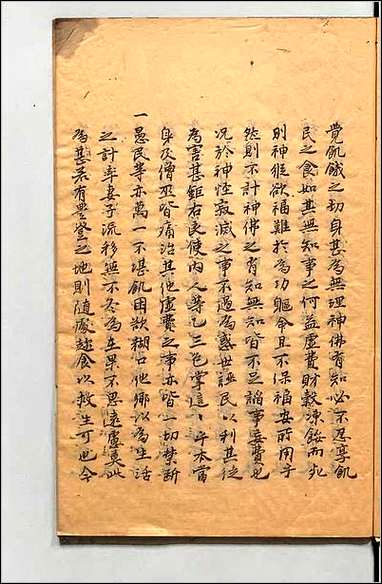 覺飢餓之切身甚爲無理神佛有知必不忍享飢
民之食如其無知事之何益虛費財穀凍餒而死
則神雖欲福難於爲功軀命且不保福安所用乎
然則不計神佛之有知無知皆不足謟事妄費也
况於神怪寂滅之事不過爲惑世誣民以利其徒
爲害甚鉅右民使內人等乙三色掌這丶斗本當
身及僧巫皆痛治其他虛費之事亦皆一切禁斷
一愚民等亦萬一不堪飢困欲糊口他鄉以爲生活
之計率妻子流移無不各爲生業不思遠慮莫此
爲甚若有豊登之地則随處趂食以救生可也今